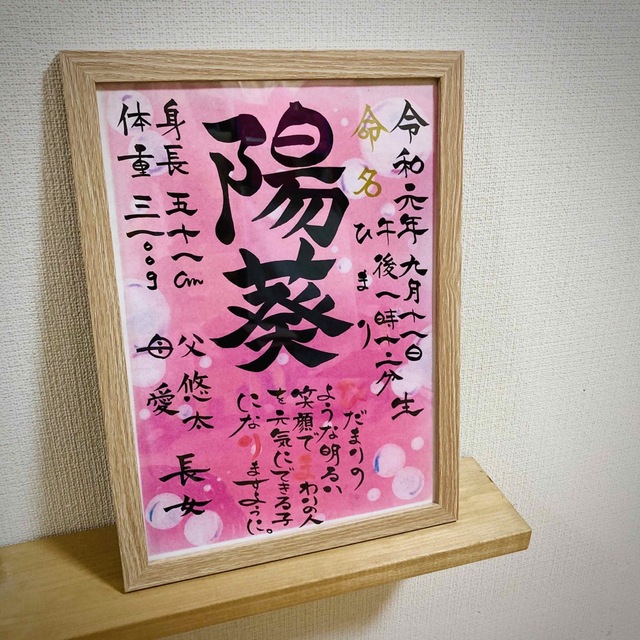 令和元年九月十一日
午後一時十二分 生
命名
ひまり
陽葵
ひだまりの
ような明るい
笑顔でまわりの人
を元気にできる子
になりますように。
身長 五十一cm
体重 三一〇〇g
父 悠太
母 愛
長女